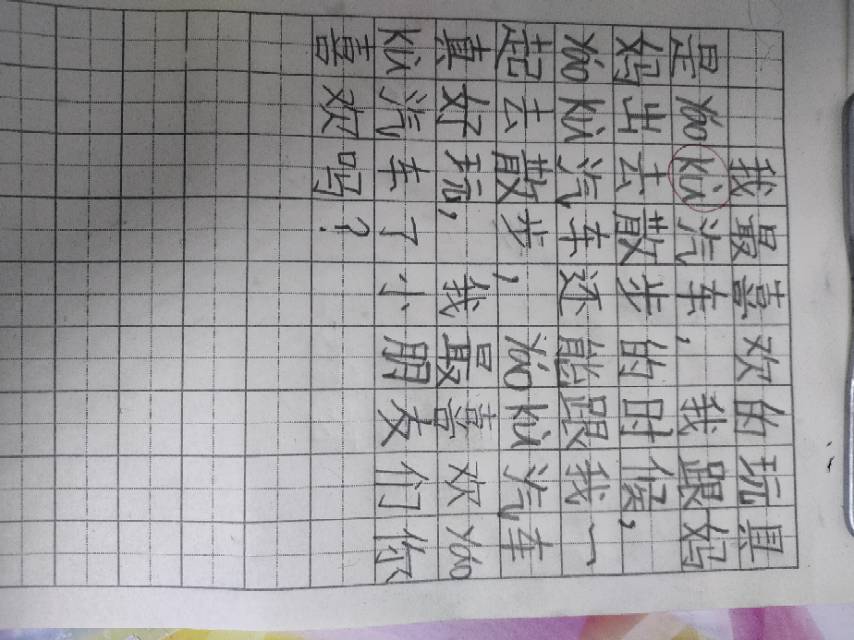 我最喜欢的玩具
是yáo kù汽车,我跟妈
妈出去散步的时候,
yáo kù汽车还能跟我一
起去散步,yáo kù汽车
真好玩,我最喜欢yáo
kù汽车了小朋友们你
喜欢吗?